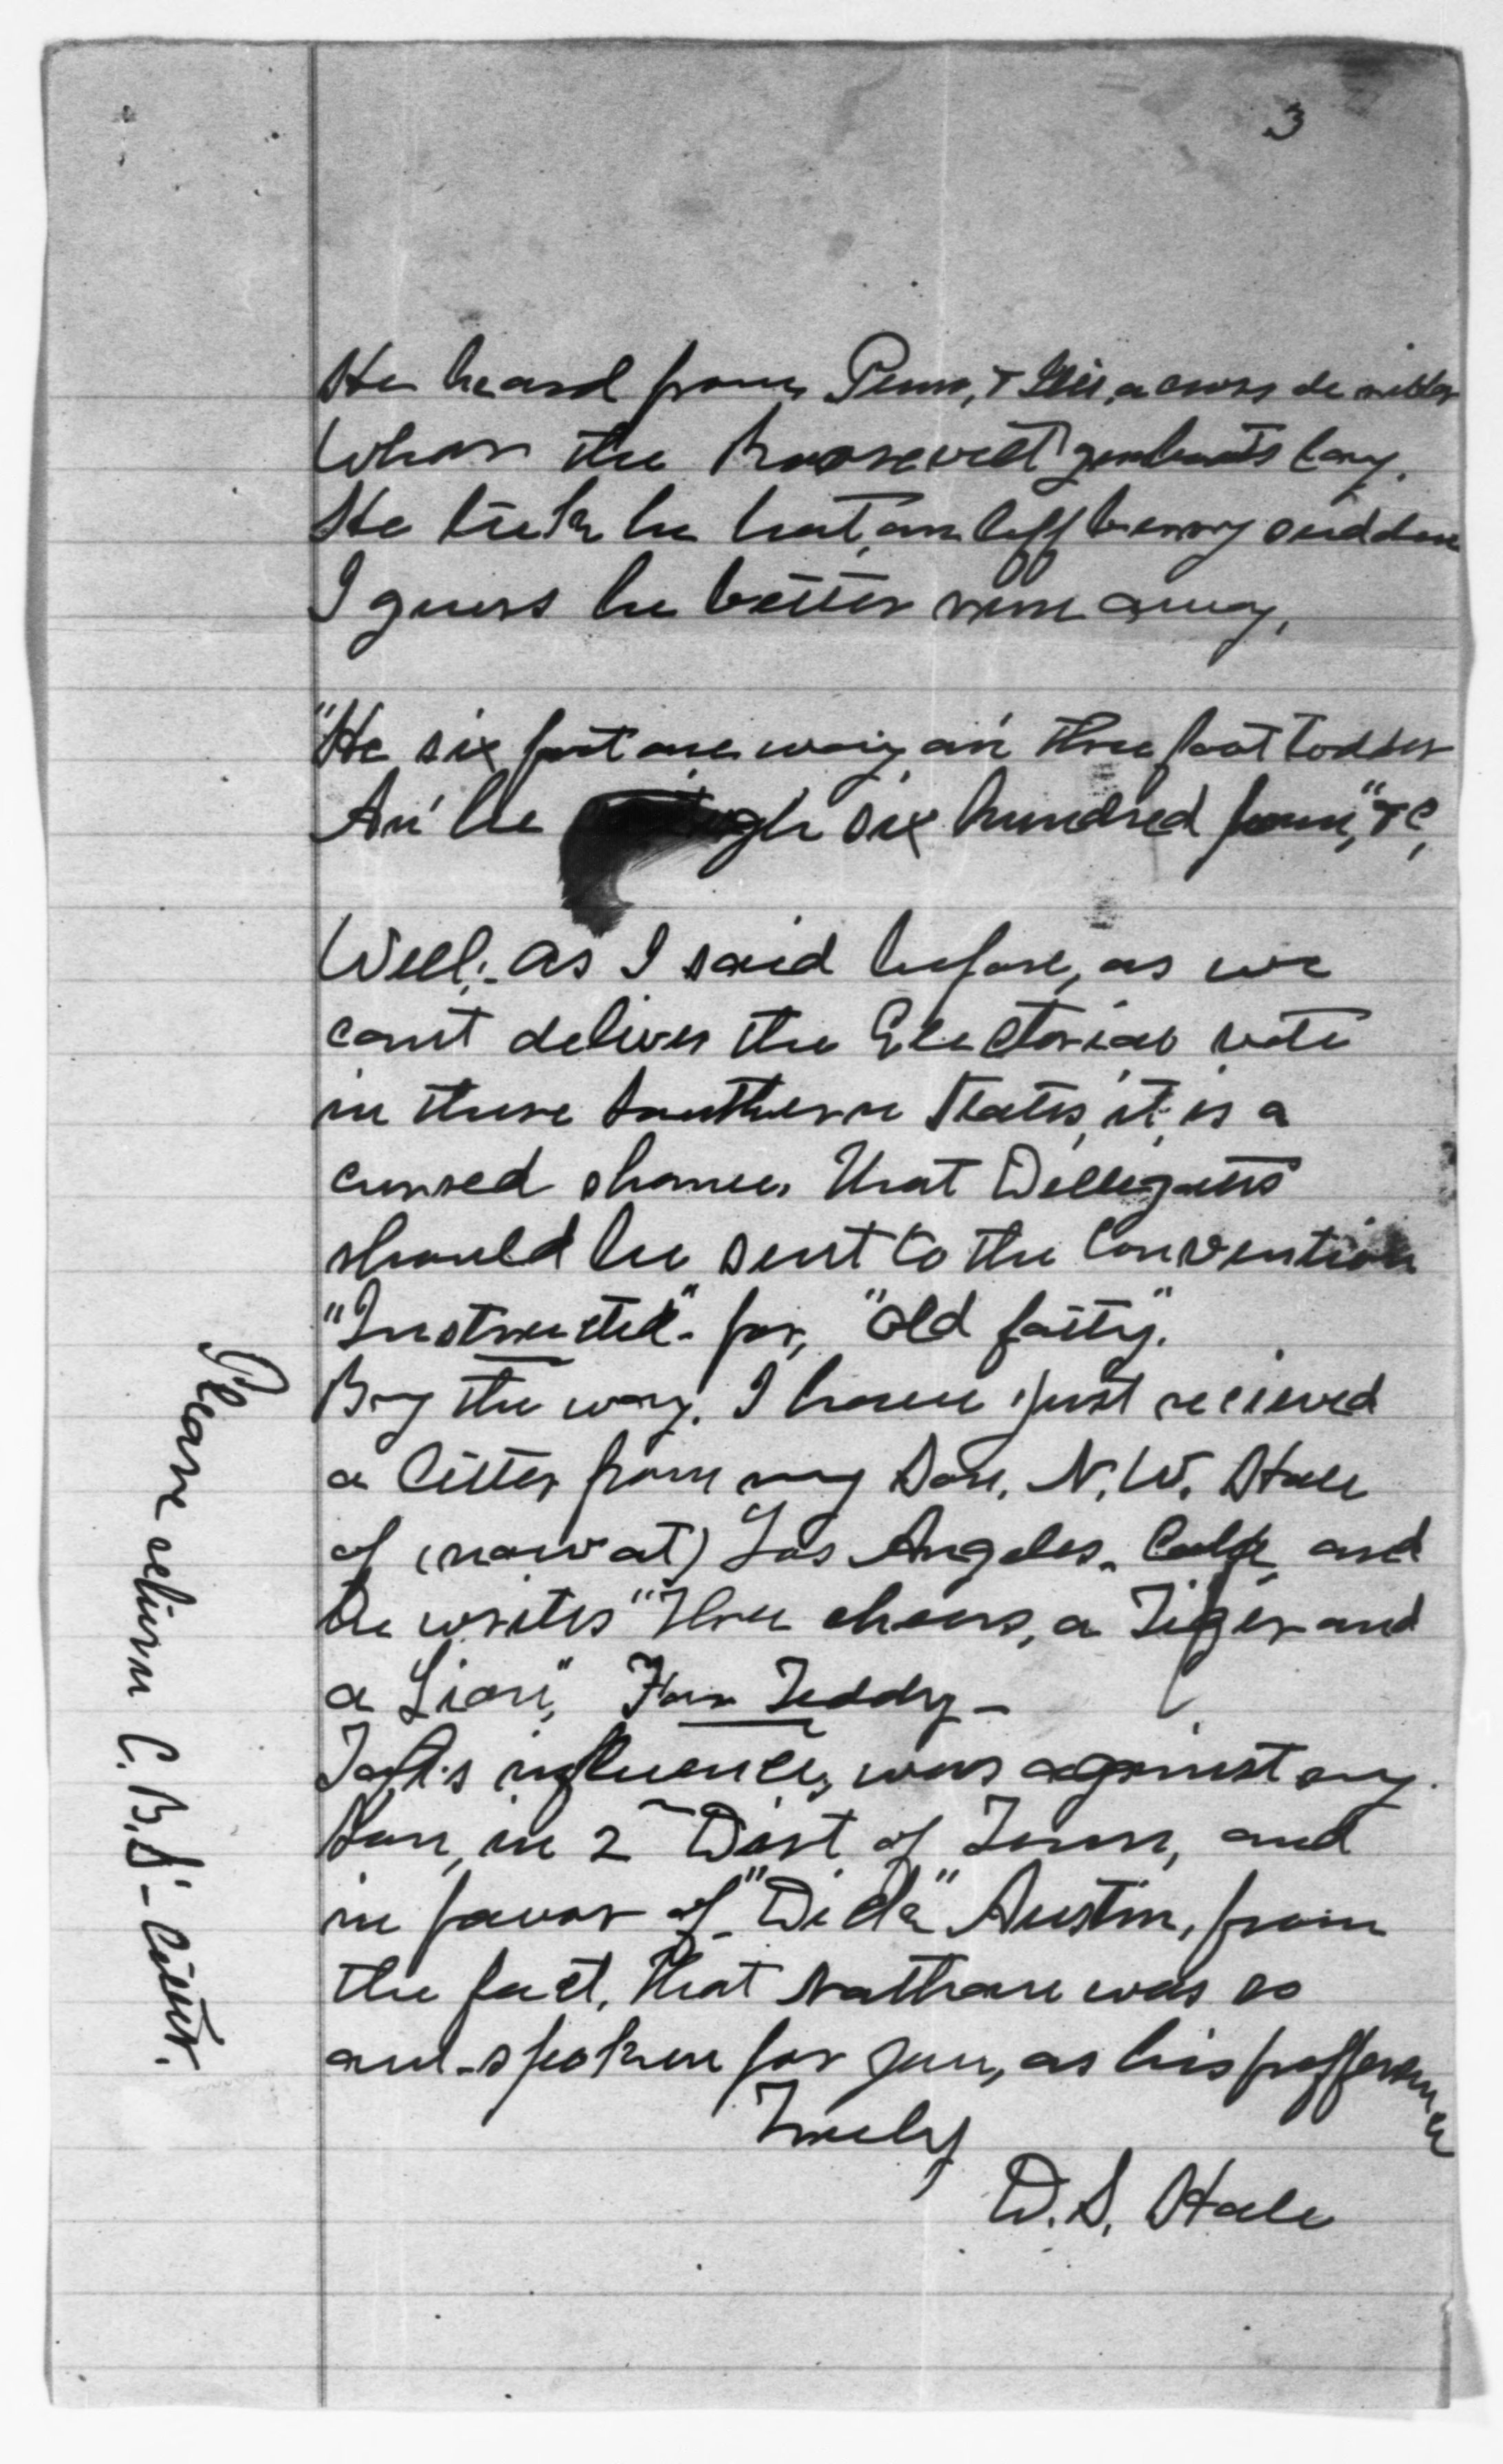 3
He heard from Penn, & Ills, across de ribber
Whar the Roosevelt gunboats lay.
He tuck he hat, an leff berry sudden
I guess he better run away,
"He six foot one way an' three foot todder
An' he six hundred poun," &c,
Well;- as I said before, as we
cant deliver the Electorial vote
in these Southern States, it is a
cursed shame, that Dellegates
should be sent to the Convention
"Instructed" for, "old fatty."
By the way. I have just recieved
a letter from my Son, N. W. Hale
of (now at) Los Angeles. Calif, and
he writes "Three cheers, a Tiger and
a Lion," For Teddy-
Taft's influence, was against my
Son, in 2 Dist of Tenn, and
in favor of "Dick" Austin, from
the fact, that Nathan was so
out-spoken for you, as his prefference
Truly
D. S. Hale
Please return C.B.S-